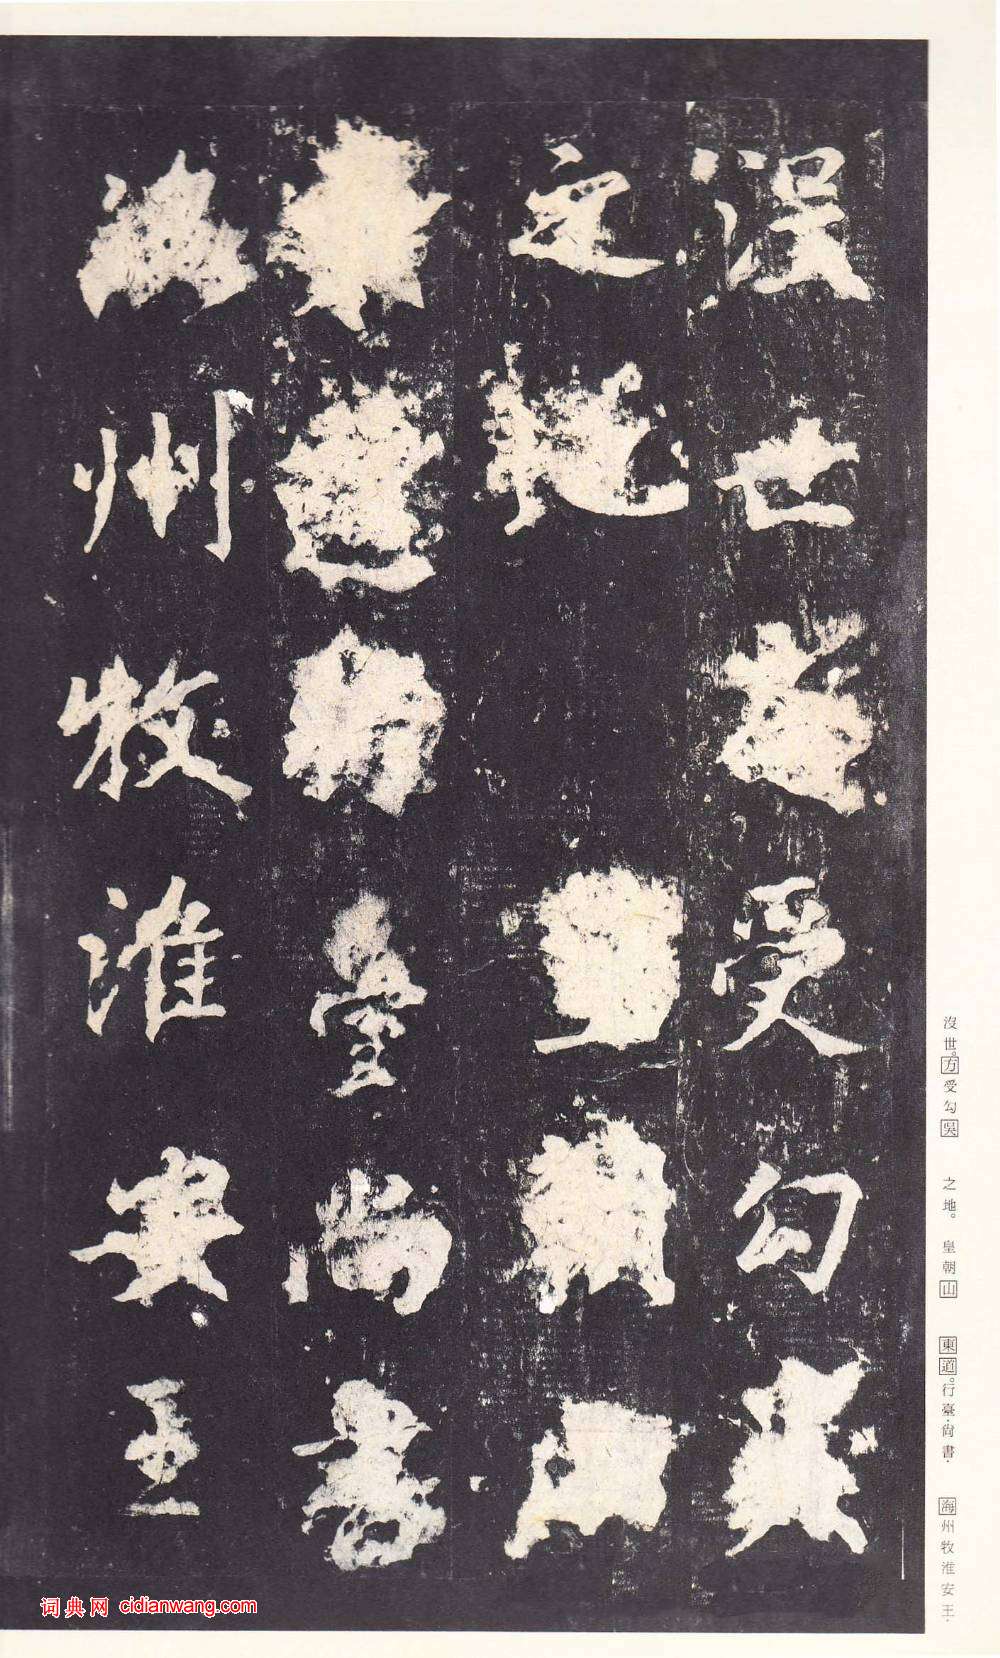 沒世方受勾吳
之地　皇朝山
東道行臺尚書
海州牧淮安王
沒世。方受勾吳　之地。皇朝山　東道。行臺·尙書·　海州牧淮安王·
词典网 cidianwang.com